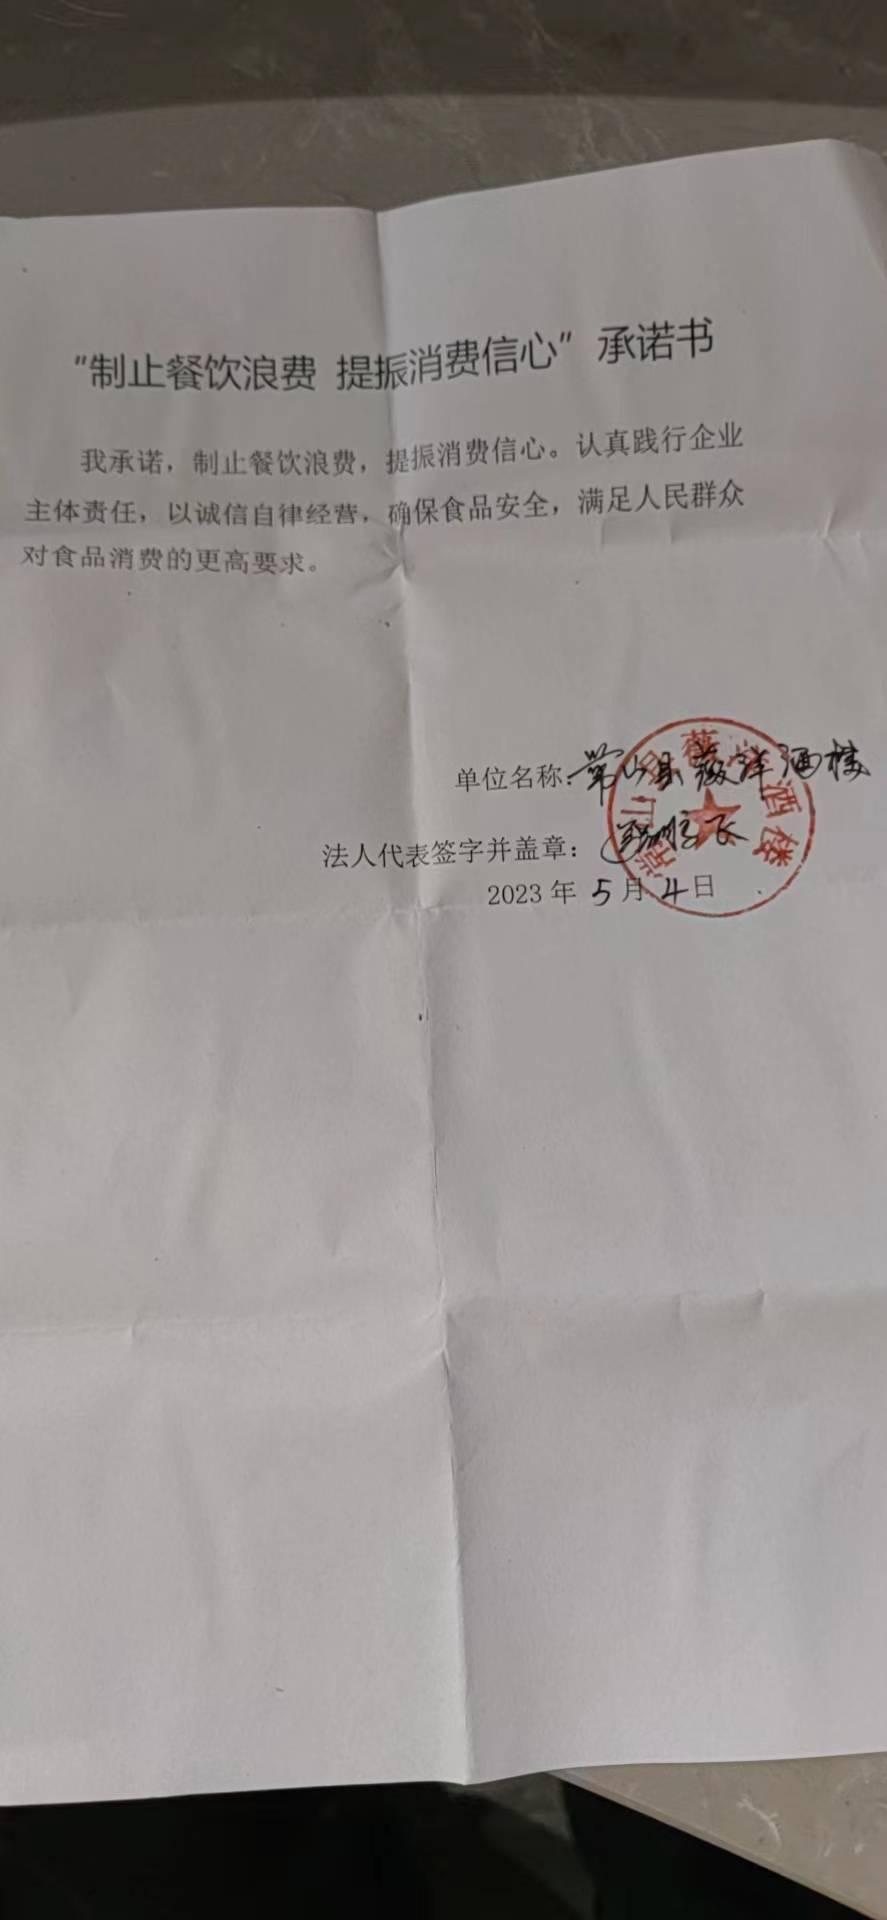 “制止餐饮浪费 提振消费信心”承诺书
我承诺，制止餐饮浪费，提振消费信心。认真践行企业
主体责任，以诚信自律经营，确保食品安全，满足人民群众
对食品消费的更高要求。
单位名称：常山县薇洋酒楼
法人代表签字并盖章：
2023年5月4日
常山县薇洋酒楼